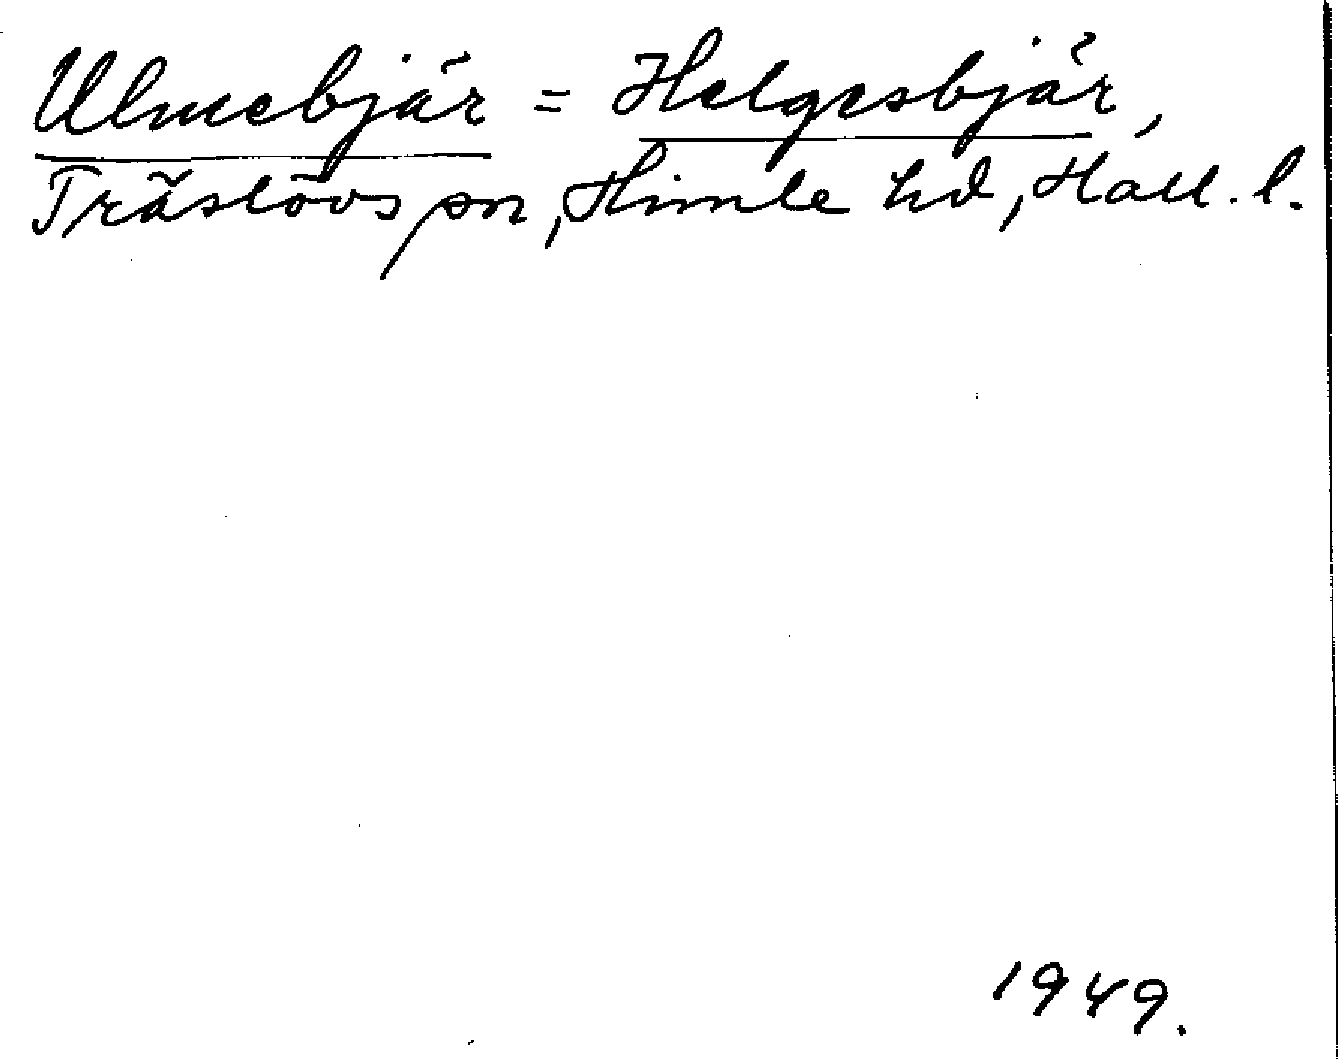 Ulmebjär = Helgesbjär,
Träslövs sn, Himle hd, Hall. l.
1949.